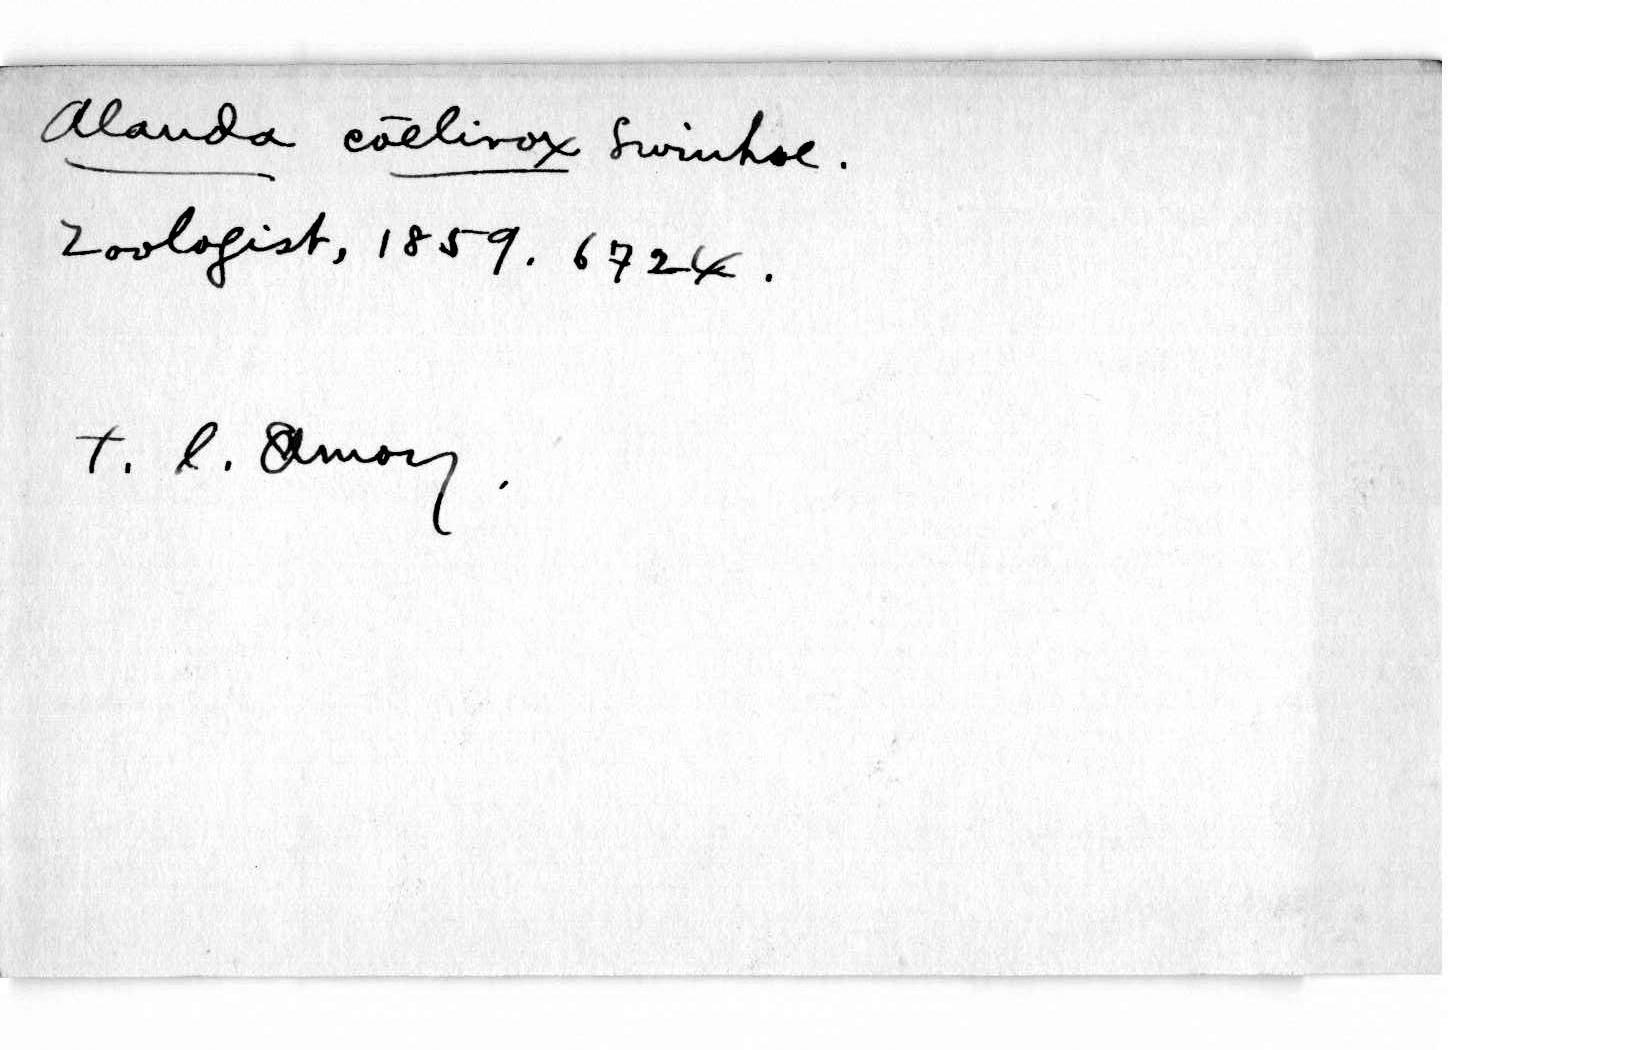 Alauda cōelivox Swinhoe.
Zoologist, 1859. 6724.
T. l. Amoy.